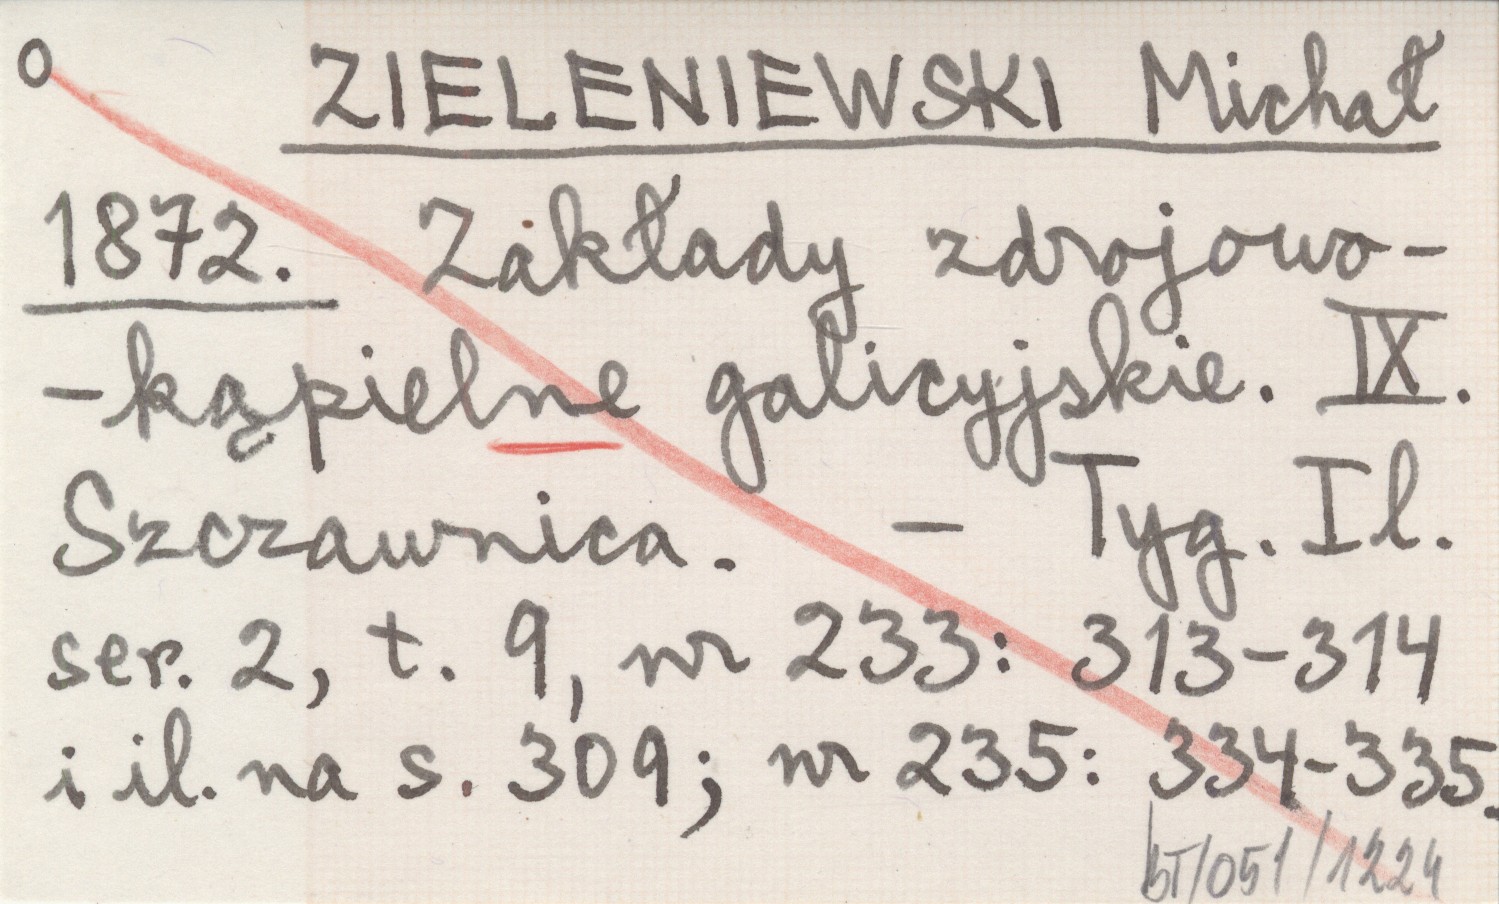 O ZIELENIEWSKI Michał
1872. Zakłady zdrojowo-
-kąpielne galicyjskie. IX.
Szczawnica. — Tyg. Il.
ser. 2, t. 9, nr 233: 313-314
i il. na s. 309; nr 235: 334-335.
BT/051/1224